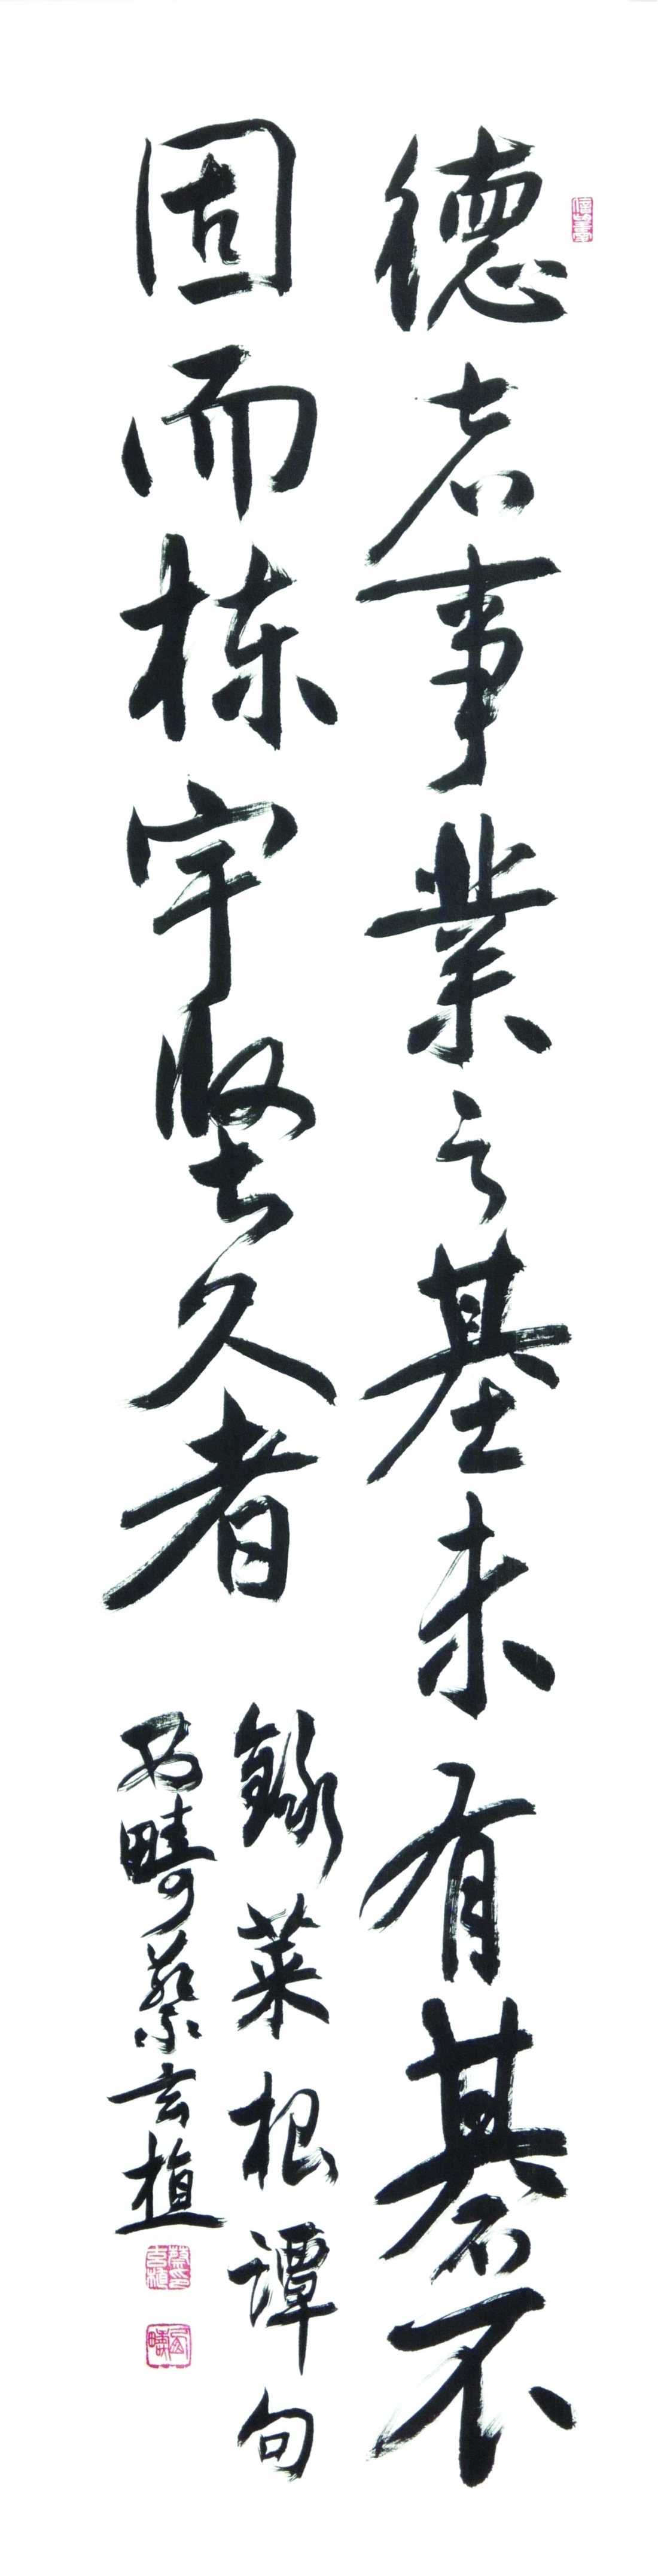 德者事業之基未有碁不
固而棟宇堅久者
録菜根譚句
蔡玄植